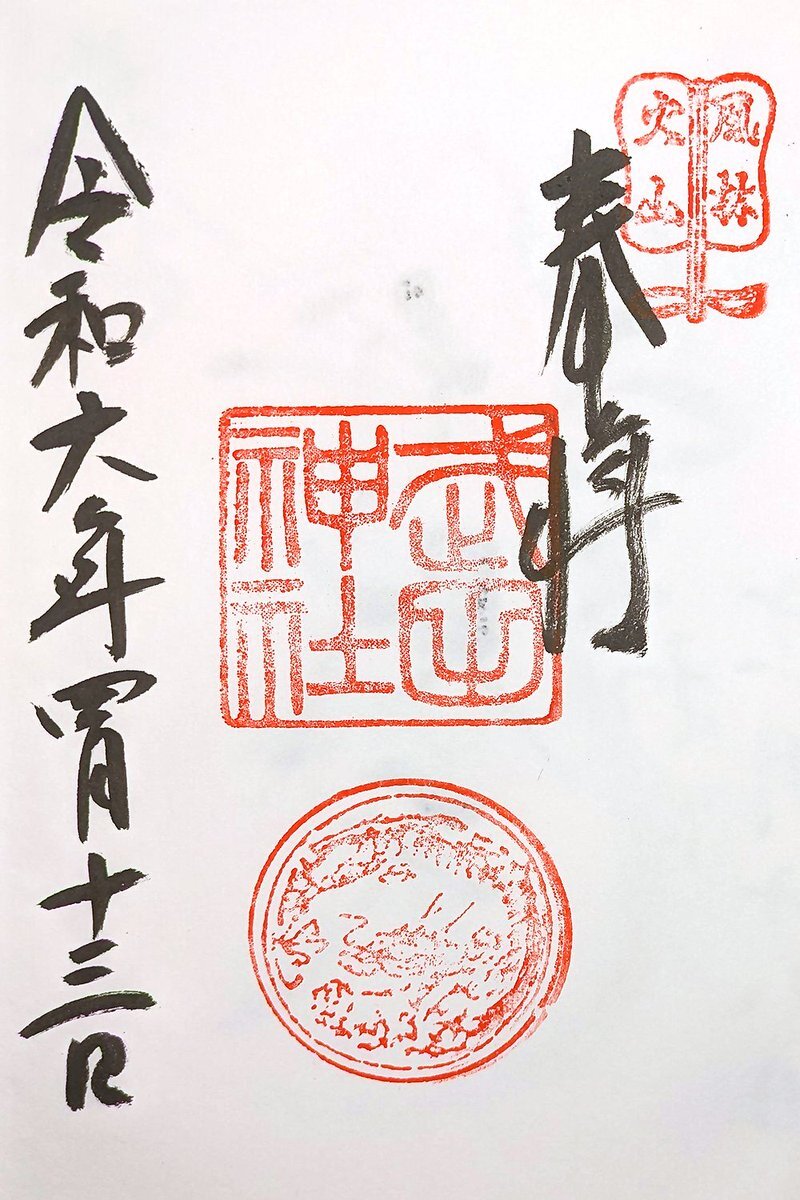 風林
火山
奉拝
武田
神社
令和六年四月十三日